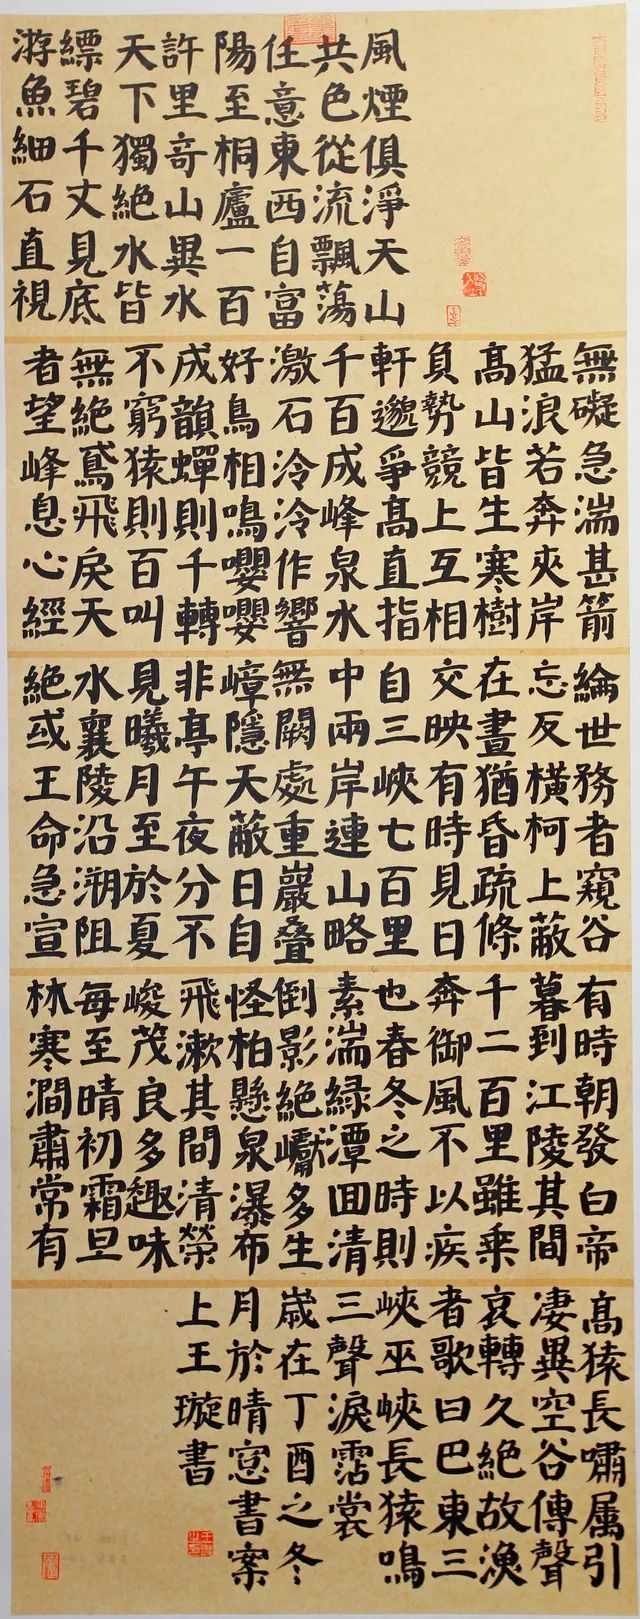 風煙俱淨天山
共色從流飄蕩
任意東西自富
陽至桐廬一百
許里奇山異水
天下獨絕水皆
縹碧千丈見底
游魚細石直視
無礙急湍甚箭
猛浪若奔夾岸
高山皆生寒樹
負勢競上互相
軒邈爭高直指
千百成峰泉水
激石泠泠作響
好鳥相鳴嚶嚶
成韻蟬則千轉
不窮猿則百叫
無絕鳶飛戾天
者望峰息心經
綸世務者窺谷
忘反橫柯上蔽
在晝猶昏疏條
交映有時見日
自三峽七百里
中兩岸連山略
無闕處重巖疊
嶂隱天蔽日自
非亭午夜分不
見曦月至於夏
水襄陵沿溯阻
絕或王命急宣
有時朝發白帝
暮到江陵其間
千二百里雖乘
奔御風不以疾
也春冬之時則
素湍綠潭回清
倒影絕巘多生
怪柏懸泉瀑布
飛漱其間清榮
峻茂良多趣味
每至晴初霜旦
林寒澗肅常有
高猿長嘯属引
凄異空谷傳聲
哀轉久絕故漁
者歌曰巴東三
峽巫峽長猿鳴
三聲淚霑裳
歲在丁酉之冬
月於晴窓書案
上王璇書